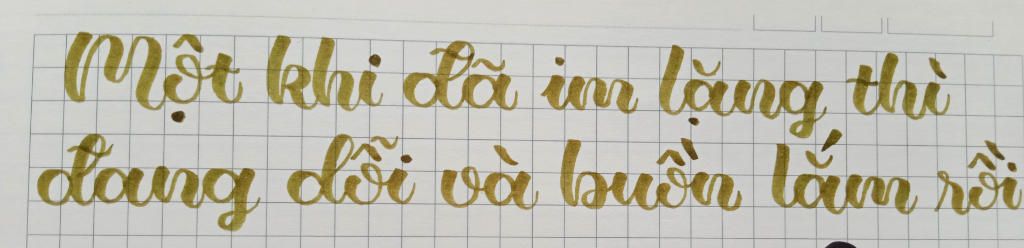 Một khi đã im lặng thì
đang dỗi và buồn lắm rồi